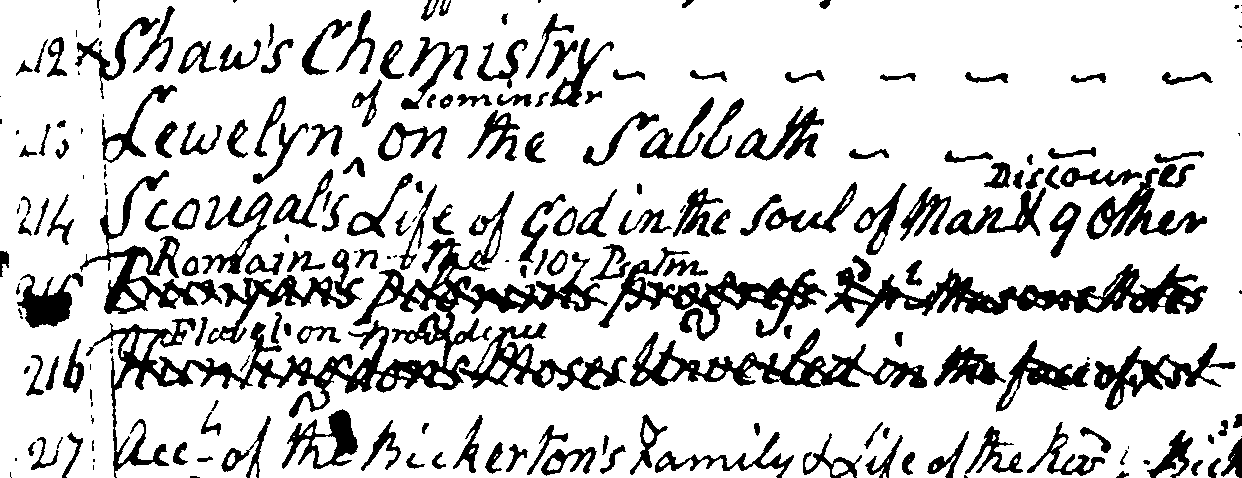 212 x Shaw's Chemistry
of Leominster
213 Lewelyn ^ on the Sabbath
Discourses
214 Scougal's Life of God in the soul of Man & 9 Other
Romain on the 107 Psalm
215 Bunyans Pilgrims Progress 2d pt Masons Notes
Flavel on Providence
216 Huntingdons Moses Unveiled in the face of Xst
217 Acct of the Bickerton's Family & Life of the Revd